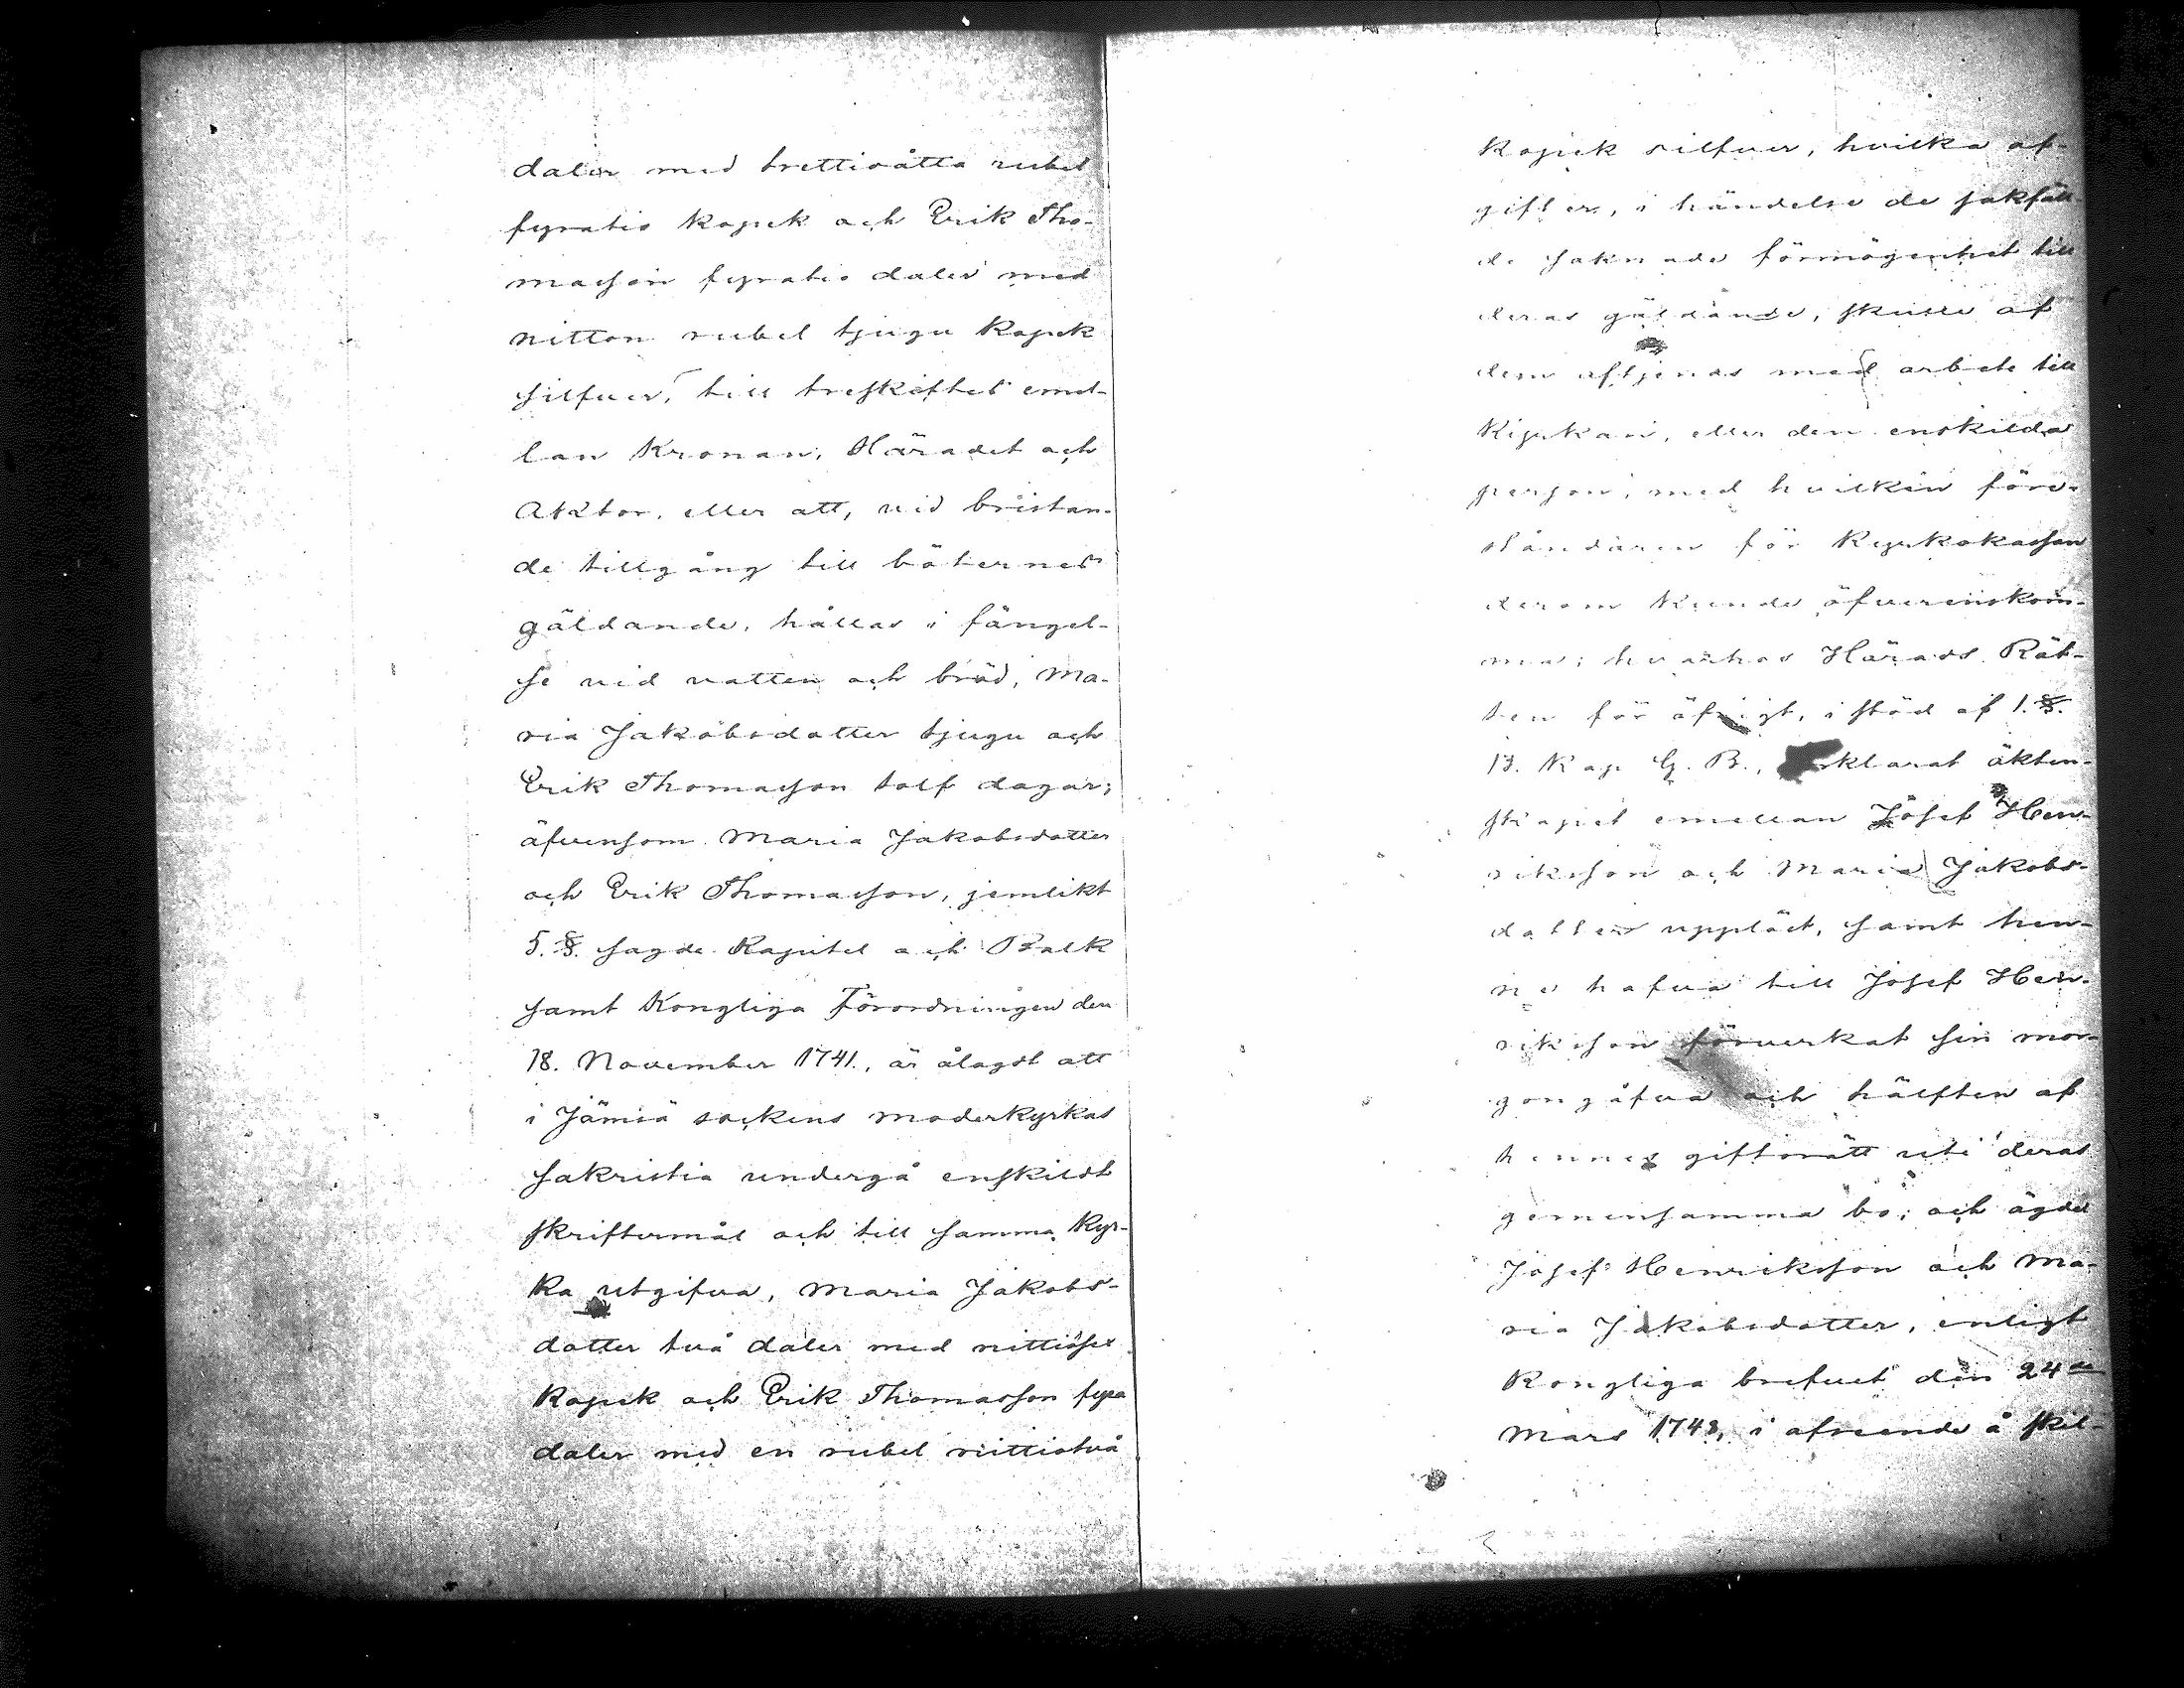 daler med trettioåtta rubel
fyratio kopek och Erik Tho-
masson fyratio daler med
nitton rubel tjugu kopek
silfver, till treskiftes emel-
lan Kronan, Häradet och
Aktor, eller att, vid bristan-
de tillgång till böternes
gäldande, hållas i fängel-
se vid vatten och bröd, Ma-
ria Jakobsdotter tjugu och
Erik Thomasson tolf dagar;
äfvensom Maria Jakobsdotter
och Erik Thomasson, jemlikt
5. §. sagde Kapitel och Balk
samt Kongliga Förordningen den
18. November 1741., är ålagdt att
i Jämiä sockens moderkyrkas
sakristia undergå enskildt
skriftermål och till samma Kyr-
ka utgifva, Maria Jakobs-
dotter två daler med nittiosex
Kopek och Erik Thomasson fyra
daler med en rubel nittiotvå
Kopek silfver, hvilka af-
gifter, i händelse de sakfäll-
de saknade förmögenhet till
deras gäldande, skulle af
dem aftjenas med arbete till
Kyrkan, eller den enskilda
person, med hvilken före-
ståndaren för Kyrkokassan
derom kunde öfverenskom-
ma; hvarhos Härads Rät-
ten för öfrigt, i stöd af 1. §.
13. Kap. G. B., förklarat äkten-
skapet emellan Josef Hen-
riksson och Maria Jakobs-
dotter upplöst, samt hen-
ne hafva till Josef Hen-
riksson förverkat sin mor-
gongåfva och hälften af
hennes giftorätt uti deras
gemensamma bo; och ägde
Josef Henriksson och Ma-
ria Jakobsdotter, enligt
Kongliga brefvet den 24de
Mars 1743, i afseende å skil-